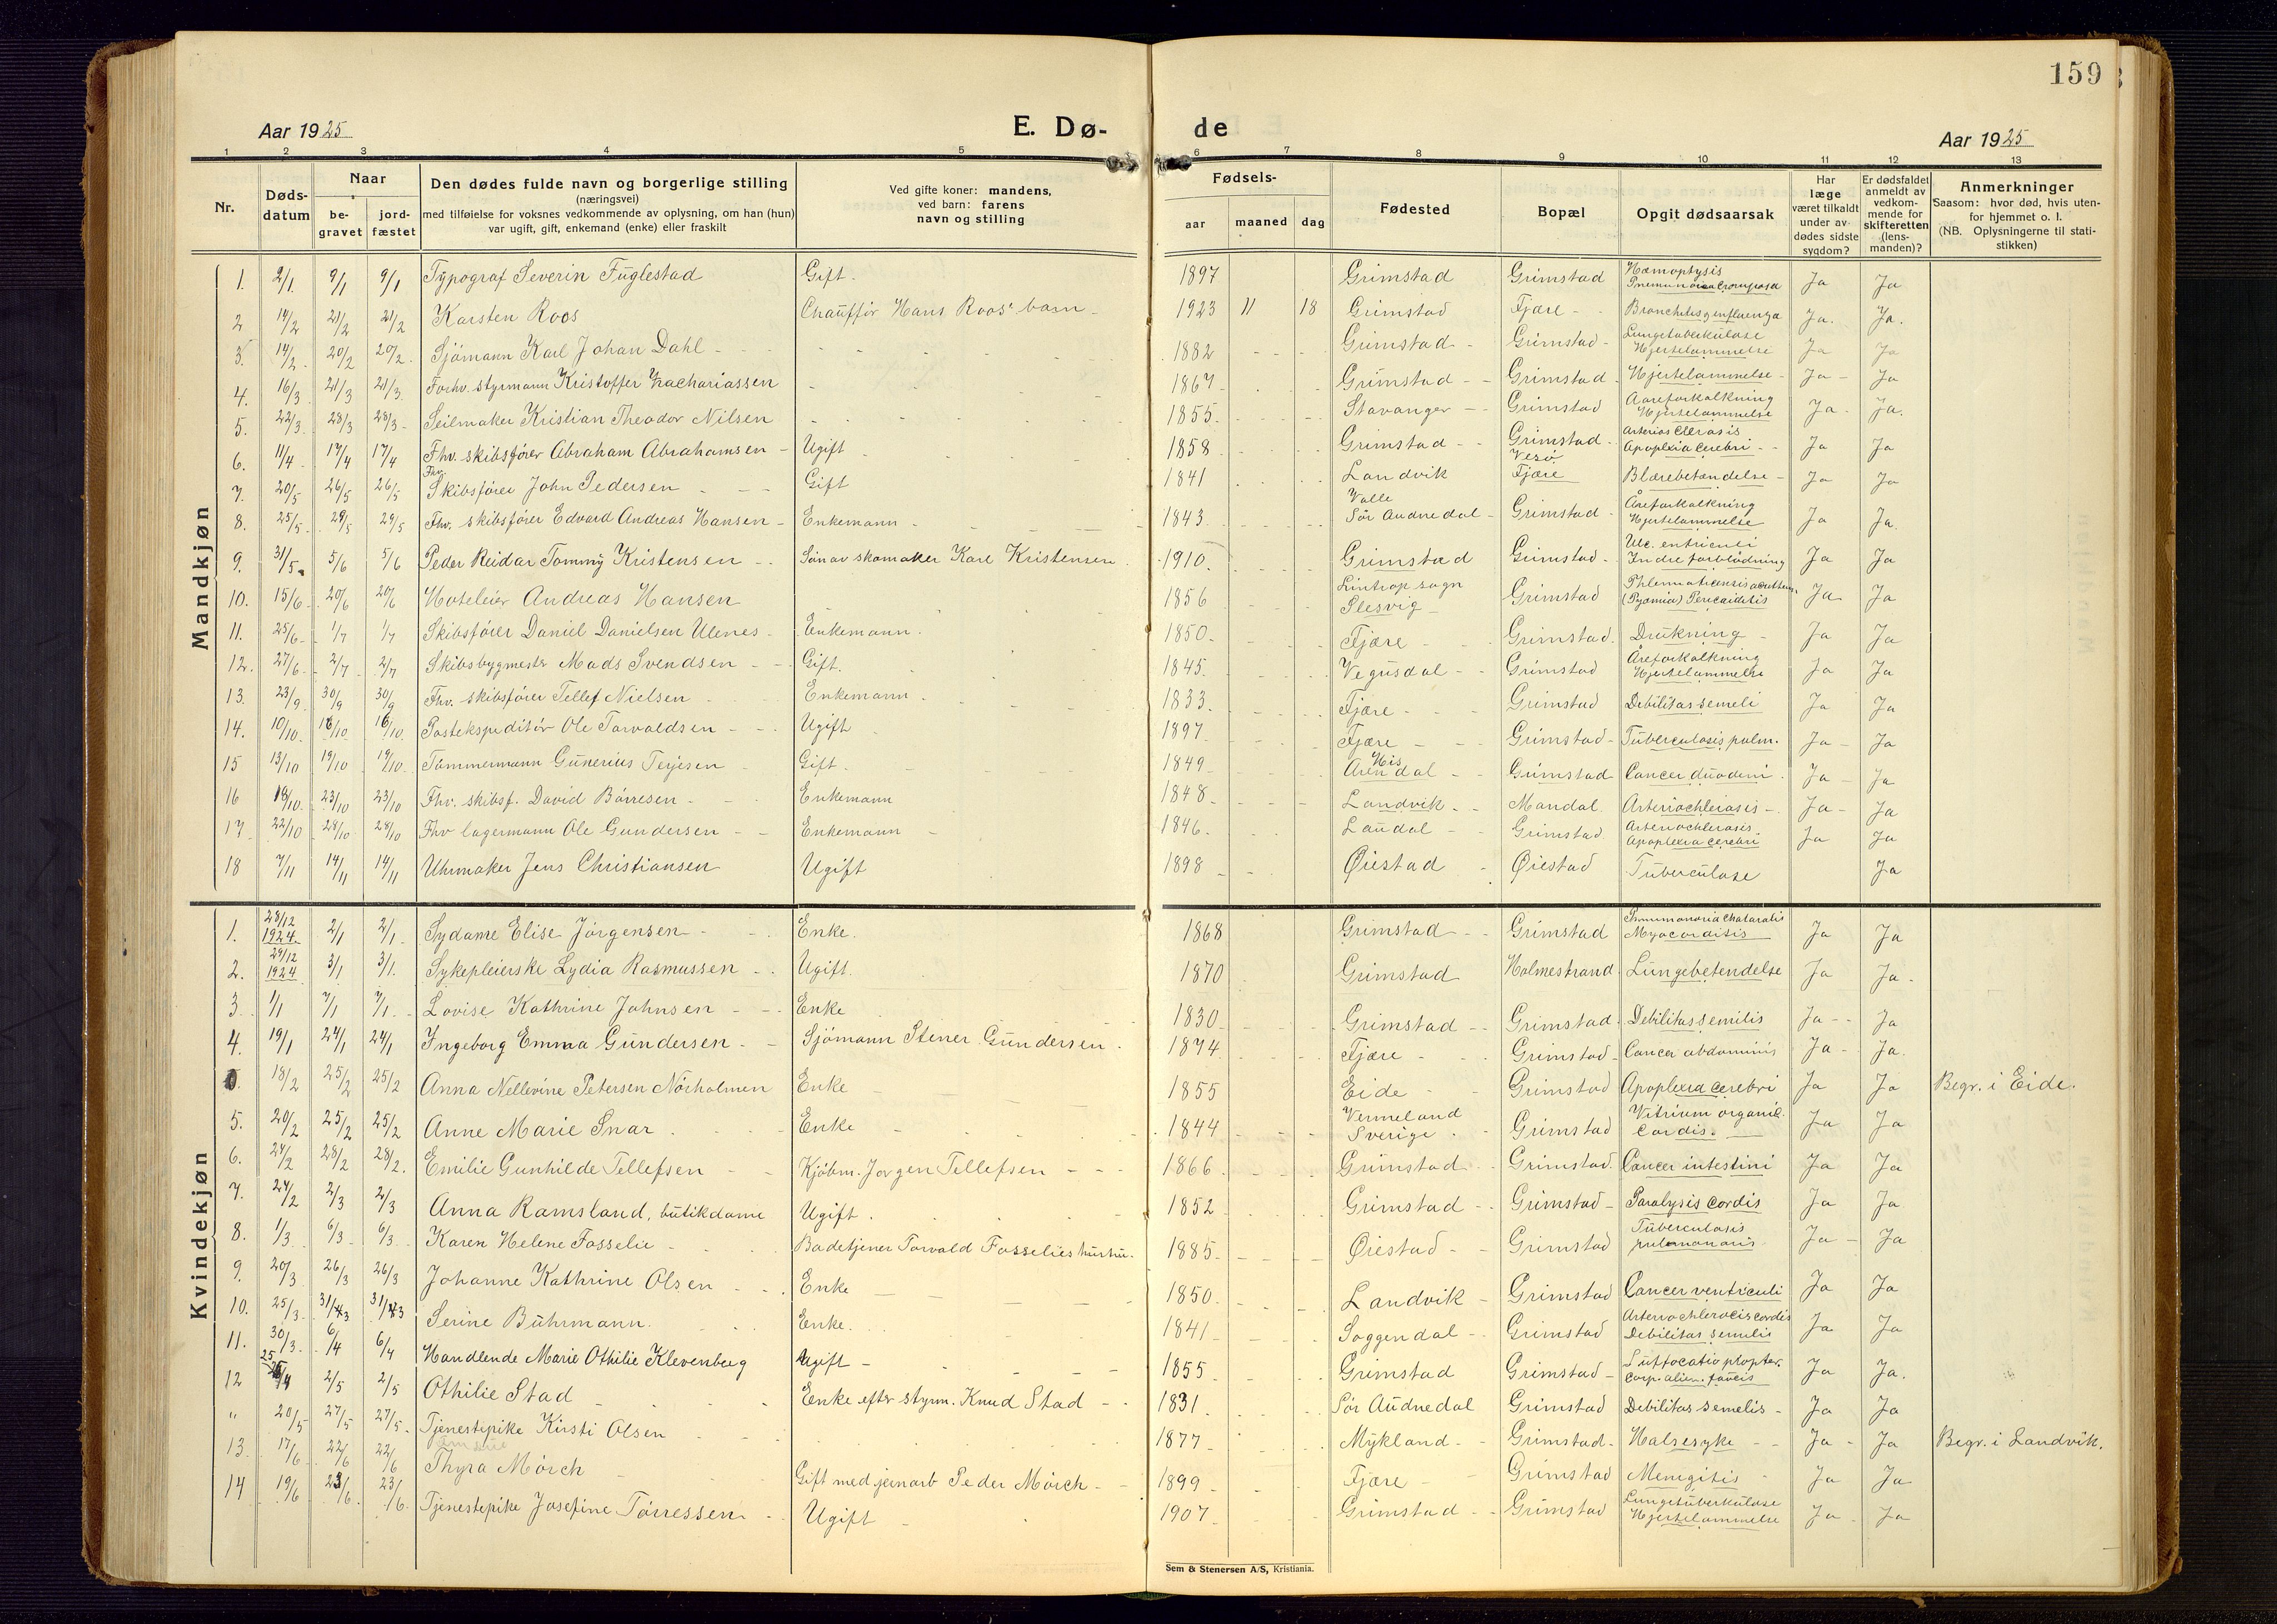 159
Aar 1925
E. Dø-
de
Aar 1925
1 2 3 4 5 6 7 8 9 10 11 12 13
Nr.
Døds-
datum
Naar
be-
gravet
jord-
fæstet
Den dødes fulde navn og borgerlige stilling
(næringsvei)
med tilføielse for voksnes vedkommende av oplysning, om han (hun)
var ugift, gift, enkemand (enke) eller fraskilt
Ved gifte koner: mandens,
ved barn: farens
navn og stilling
Fødsels-
aar
maaned
dag
Fødested
Bopæl
Opgit dødsaarsak
Har
læge
været tilkaldt
under av-
dødes sidste
sygdom?
Er dødsfaldet
anmeldt av
vedkom-
mende for
skifteretten
(lens-
manden)?
Anmerkninger
Saasom: hvor død, hvis uten-
for hjemmet o. l.
(NB. Oplysningerne til stati-
stikken)
Mandkjøn
1. 2/1 9/1 9/1 Typograf Severin Fuglestad Gift. 1897 Grimstad Grimstad Hæmoptysis Ja Ja
2 14/2 21/2 21/2 Karsten Roos Chauffør Hans Roos' barn 1923 11 18 Grimstad Fjære Bronchitis og influenza Ja. Ja.
3. 14/2 20/2 20/2 Sjömann Karl Johan Dahl 1882 Grimstad Grimstad Lungetuberkulose Hjertelammelse Ja Ja
4. 16/3 21/3 21/3 Forhv. styrmann Kristoffer Zachariassen 1867 Grimstad Grimstad Hjertelammelse Ja Ja
5. 22/3 28/3 28/3 Seilmaker Kristian Theodor Nilsen 1855 Stavanger Grimstad Aareforkalkning Hjertelammelse Ja Ja.
6. 11/4 17/4 17/4 Fhv. skibsfører Abraham Abrahamsen Ugift 1858 Grimstad Grimstad Arterios clerosis Apoplexia cerebri Ja Ja
7. 20/5 26/5 26/5 Fhv. Skibsfører John Pedersen Gift 1841 Landvik Vesø Fjære Blærebetændelse Ja Ja
8. 25/5 29/5 29/5 Fhv. skibsfører Edvard Andreas Hansen Enkemann 1843 Valle Sør Audnedal Grimstad Åreforkalkning Hjertelammelse Ja Ja.
9. 31/5 5/6 5/6 Peder Reidar Tommy Kristensen Søn av skomaker Karl Kristensen 1910. Grimstad Grimstad Ulc. entriculi Indre forblødning Ja Ja
10. 15/6 20/6 20/6 Hoteleier Andreas Hansen 1856 Lintrop sogn Slesvig Grimstad (Pyæmia) Pericarditis Ja Ja
11. 25/6 1/7 1/7 Skibsfører Daniel Danielsen Ulenes Enkemann. 1850 Fjære Grimstad. Drukning Ja Ja
12. 27/6 2/7 2/7 Skibsbygmester Mads Svendsen Gift. 1845 Vegusdal Grimstad Åreforkalkning Hjertelammelse Ja Ja
13. 23/9 30/9 30/9 Fhv. skibsfører Tellef Nielsen Enkemann 1833. Fjære Grimstad Debilitas semeli Ja Ja
14. 10/10 16/10 16/10 Postekspeditør Ole Torvaldsen Ugift 1897 Fjære Grimstad Tuberculosis pulm. Ja Ja
15 13/10 19/10 19/10 Tømmermann Gunerius Terjesen Gift 1849 His Arendal Grimstad Cancer duodeni Ja Ja
16 18/10 23/10 23/10 Fhv. skibsf. David Børresen Enkemann 1848 Landvik Mandal Arteriochlerosis Ja Ja
17 22/10 28/10 28/10 Fhv lagermann Ole Gundersen Enkemann 1846 Laudal Grimstad Arteriochlerosis. Apoplexia cerebri Ja Ja
18 7/11 14/11 14/11 Uhrmaker Jens Christiansen Ugift 1898 Øiestad Øiestad Tuberculose Ja
Kvindekjøn
1. 28/12 1924. 2/1 2/1 Sydame Elise Jørgensen Enke. 1868 Grimstad Grimstad Myocorditis Ja Ja
2. 29/12 1924 3/1 3/1 Sykepleierske Lydia Rasmussen Ugift. 1870 Grimstad Holmestrand Lungebetendelse Ja Ja
3. 1/1 7/1 7/1 Lovise Kathrine Johnsen Enke 1830 Grimstad Grimstad. Debilitas semilis Ja Ja
4. 19/1 24/1 24/1 Ingeborg Emma Gundersen Sjømann Stener Gundersen 1874 Fjære Grimstad Cancer abdominis Ja Ja.
18/2 25/2 25/2 Anna Nellevine Petersen Nørholmen Enke 1855 Eide Grimstad Apoplexia cerebri Ja Ja Begr. i Eide.
5. 20/2 25/2 25/2 Anne Marie Snar Enke 1844 Vermeland Sverige Grimstad Vitrium organic. Cordis. Ja Ja
6. 24/2 28/2 28/2. Emilie Gunhilde Tellefsen Kjøbm. Jørgen Tellefsen 1866 Grimstad Grimstad. Cancer intestini Ja Ja
7. 24/2 2/3 2/3 Anna Ramsland, butikdame Ugift. 1852 Grimstad Grimstad Paralysis cordis Ja Ja.
8. 1/3 6/3 6/3 Karen Helene Fosselie Badetjener Torvald Fosselies hustru. 1885 Øiestad Grimstad Tuberculosis pulmonaris Ja Ja
9. 20/3 26/3 26/3 Johanne Kathrine Olsen Enke 1850. Landvik Grimstad Cancer ventriculi Ja Ja
10. 25/3 31/3 31/3 Serine Buhrmann. Enke. 1841 Soggendal Grimstad Arteriochlerocis cordis Debilitas semilis Ja Ja
11. 30/3 6/4 6/4 Handlende Marie Othilie Klevenberg Ugift 1855 Grimstad Grimstad Suffocatio propter. corp. alien. faucis Ja Ja.
12 25/4 2/5 2/5 Othilie Stad Enke efter styrm. Knud Stad 1831. Sør Audnedal Grimstad Debilitas semelis Ja Ja
" 20/5 27/5 27/5 Tjenestepike Kirsti Olsen 1877 Mykland Grimstad Halsesyke Ja Ja Begr. i Landvik.
13. 17/6 22/6 22/6 Thyra Mørch Gift med jernarb Peder Mørch 1899 Fjære Grimstad Menegitis Ja Ja
14 19/6 23/6 23/6 Tjenestepike Josefine Tørressen Ugift 1907 Grimstad Grimstad Lungetuberkulose Hjertelammelse Ja Ja
Sem & Stenersen A/S, Kristiania.